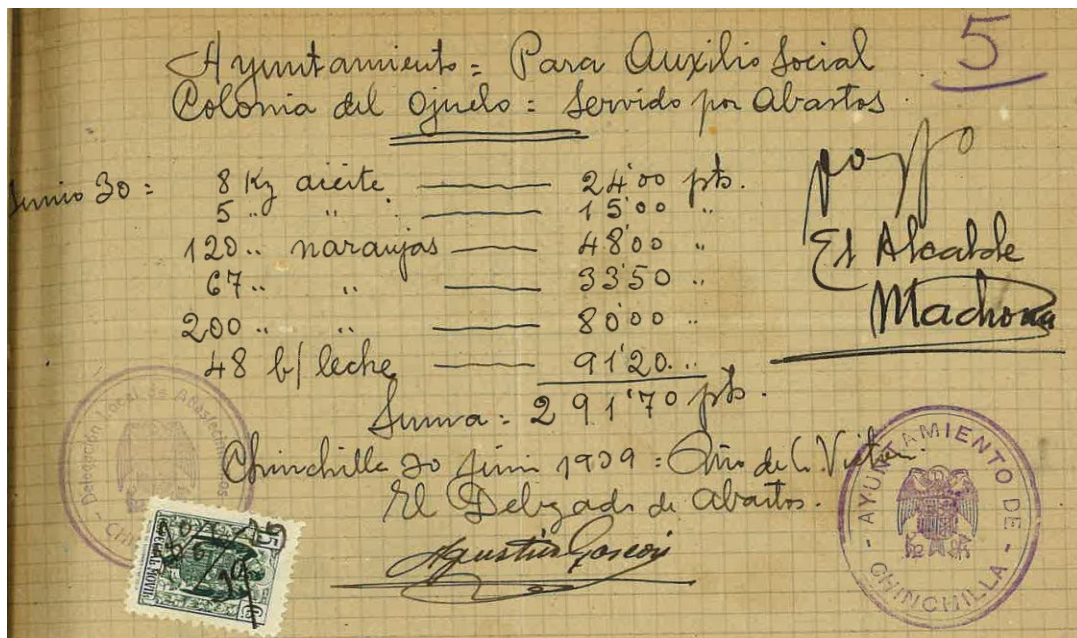 5
Ayuntamiento = Para Auxilio Social
Colonia del Ojuelo = Servido por Abastos
Junio 30 = 8 Kg aieite 24'00 pts.
5 " " 15'00 "
120 " naranjas 48'00 "
67 " " 33'50 "
200 " " 80'00 "
48 b/ leche 91'20 "
Suma = 291'70 pts.
El Alcalde
Machona
Chinchilla 30 Junio 1939 = Año de la Victoria
El Delegado de Abastos.
Agustín Gascón
Delegación Local de Abastecimientos
AYUNTAMIENTO DE - CHINCHILLA -
ESPECIAL MOVIL